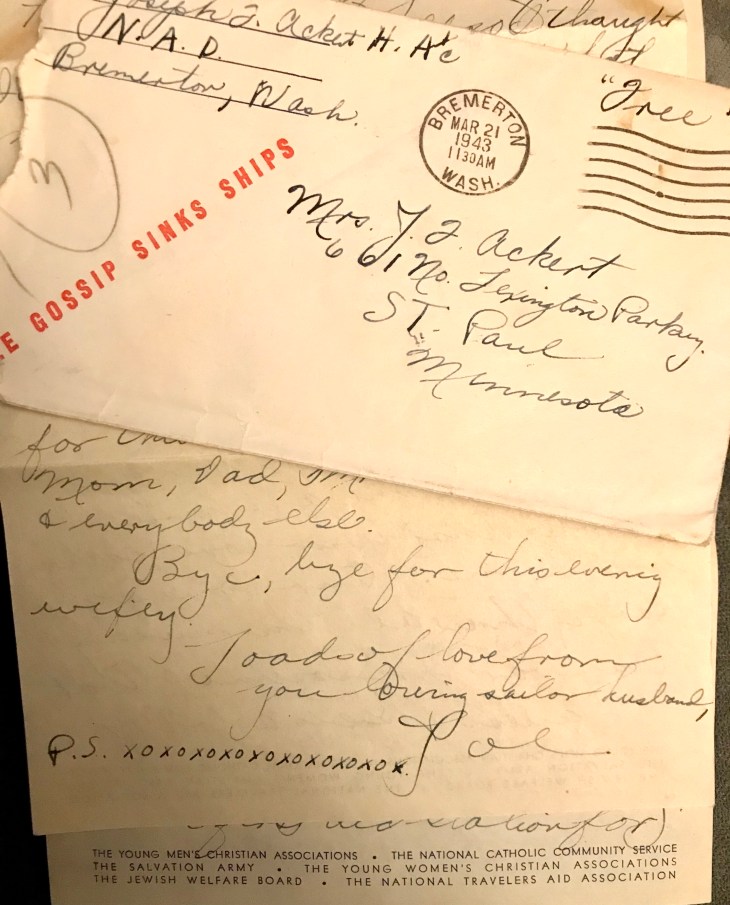 thought
Joseph J. Ackert H. A 2/c
N. A. D.
Bremerton, Wash.
"Free"
BREMERTON
MAR 21
1943
1130AM
WASH.
3
E GOSSIP SINKS SHIPS
Mrs. J. J. Ackert
661 No. Lexington Parkwy.
ST. Paul
Minnesota
for
Mom, Dad,
& everybody else.
Bye, bye for this evenig
wifey.
Loads of love from
you loving sailor husband,
Joe
P.S. xoxoxoxoxoxoxoxoxox.
station for)
THE YOUNG MEN'S CHRISTIAN ASSOCIATIONS • THE NATIONAL CATHOLIC COMMUNITY SERVICE
THE SALVATION ARMY • THE YOUNG WOMEN'S CHRISTIAN ASSOCIATIONS
THE JEWISH WELFARE BOARD • THE NATIONAL TRAVELERS AID ASSOCIATION